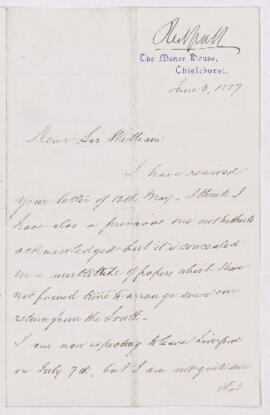 The Manor House,
Chislehurst.
June 3, 1889
Dear Sir William
I have received
your letter of 12th May. I think I
have also a previous one not hitherto
acknowledged but it is concealed
in a multitude of papers which I have
not found time to arrange since our
return from the South.
I am now expecting to leave Liverpool
on July 7th, but I am not quite sure